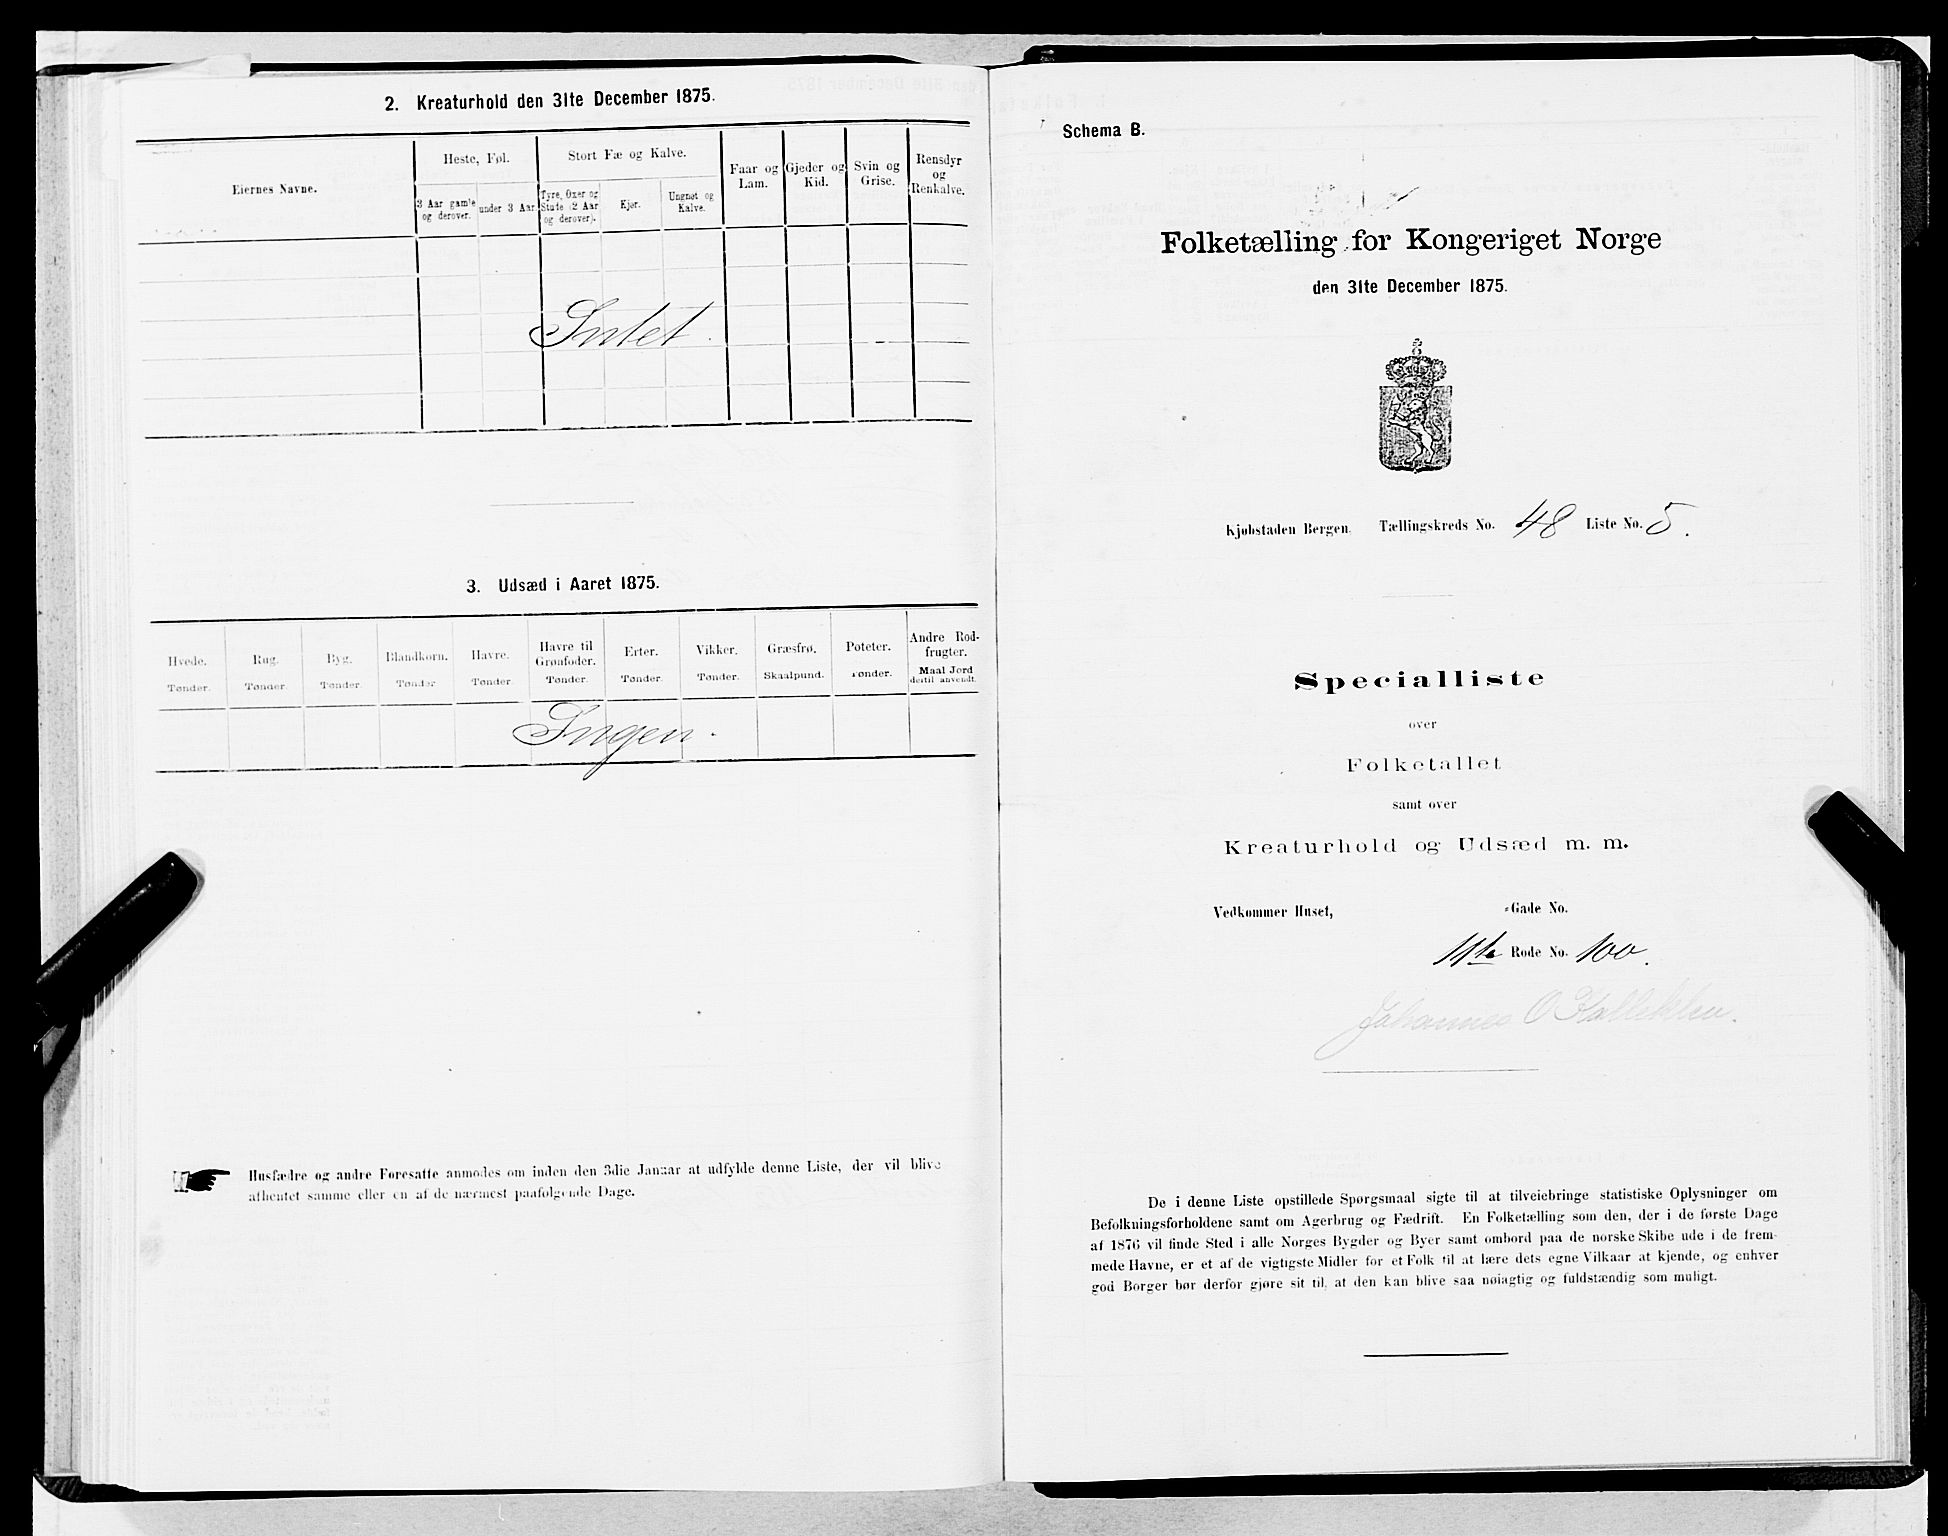 2. Kreaturhold den 31te December 1875.
Eiernes Navne.
Heste, Føl.
3 Aar gamle og derover.
under 3 Aar.
Stort Fæ og Kalve.
Tyre, Oxer og Stude (2 Aar og derover).
Kjør.
Ungnøt og Kalve.
Faar og Lam.
Gjeder og Kid.
Svin og Grise.
Rensdyr og Renkalve.
Intet.
3. Udsæd i Aaret 1875.
Hvede. Rug. Byg. Blandkorn. Havre. Havre til Grønfoder. Erter. Vikker. Græsfrø. Poteter. Andre Rodfrugter.
Tønder. Tønder. Tønder. Tønder Tønder. Tønder. Tønder. Tønder. Skaalpund. Tønder. Maal Jord dertil anvendt.
Ingen.
Husfædre og andre Foresatte anmodes om inden den 3die Januar at udfylde denne Liste, der vil blive
afhentet samme eller en af de nærmest paafølgende Dage.
Schema B.
Folketælling for Kongeriget Norge
den 31te December 1875.
Kjøbstaden Bergen. Tællingskreds No. 48 Liste No. 5.
Specialliste
over
Folketallet
samt over
Kreaturhold og Udsæd m. m.
Vedkommer Huset, -Gade No.
11te Rode No. 100.
Johannes O
De i denne Liste opstillede Spørgsmaal sigte til at tilveiebringe statistiske Oplysninger om
Befolkningsforholdene samt om Agerbrug og Fædrift. En Folketælling som den, der i de første Dage
af 1876 vil finde Sted i alle Norges Bygder og Byer samt ombord paa de norske Skibe ude i de frem-
mede Havne, er et af de vigtigste Midler for et Folk til at lære dets egne Vilkaar at kjende, og enhver
god Borger bør derfor gjøre sit til, at den kan blive saa nøiagtig og fuldstændig som muligt.